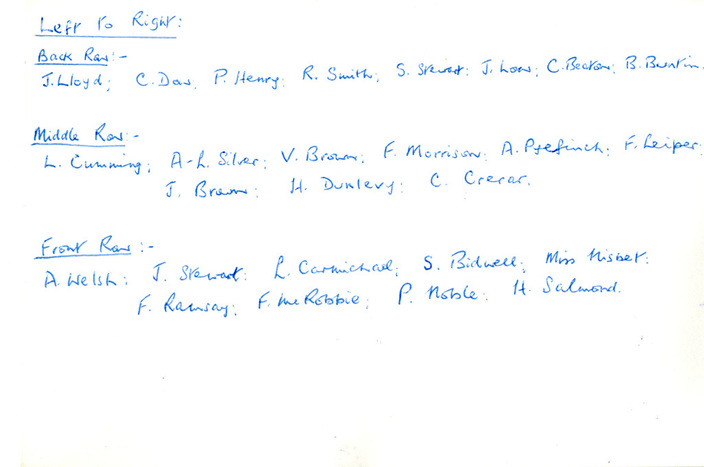 Left to Right:
Back Row:-
J. Lloyd; C. Dow; P. Henry; R. Smith; S. Stewart; J. Low; C. Becton; B. Buntin.
Middle Row:-
L. Cumming; A-L. Silver; V. Brown; F. Morrison; A. F. Leiper;
J. Brown; H. Dunlevy; C. Crerar.
Front Row:-
A. Welsh; J. Stewart; L. Carmichael; S. Bidwell; Miss Nisbet;
F. Ramsay; F. McRobbie; P. Noble; H. Salmond.